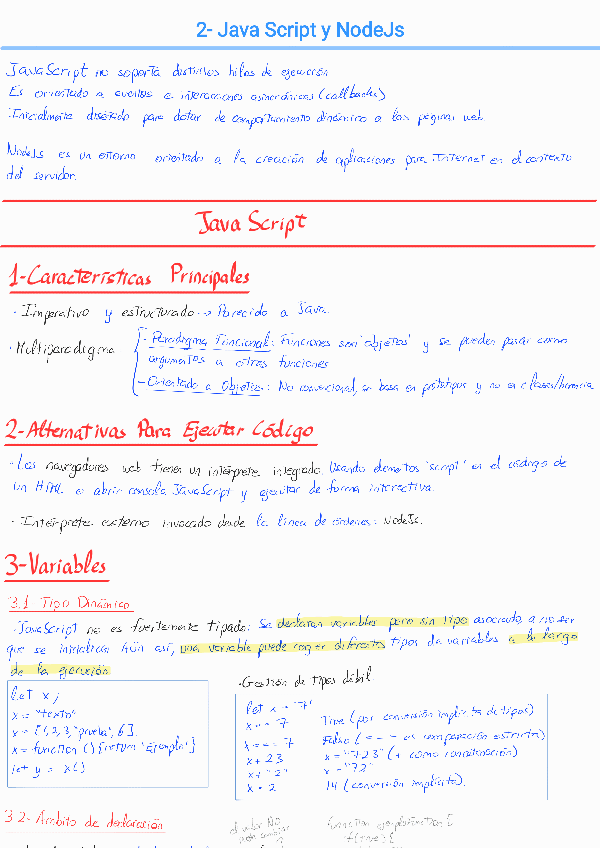 2- Java Script y NodeJs
JavaScript no soporta distintos hilos de ejecución
Es orientado a eventos e interacciones asincrónicas (callbacks)
Inicialmente diseñado para dotar de comportamiento dinámico a las páginas web
NodeJs es un entorno orientado a la creación de aplicaciones para Internet en el contexto
del servidor.
Java Script
1-Características Principales
· Imperativo y estructurado → Parecido a Java.
· Multiparadigma
- Paradigma Funcional: Funciones son "objetos" y se pueden pasar como
argumentos a otras funciones
- Orientado a Objetos: No convencional, se basa en prototipos y no en clases/herencia
2-Alternativas Para Ejecutar Código
· Los navegadores web tienen un intérprete integrado. Usando elementos "script" en el código de
un HTML o abrir consola JavaScript y ejecutar de forma interactiva.
· Intérprete externo invocado desde la línea de órdenes: NodeJs.
3-Variables
3.1 Tipo Dinámico
· JavaScript no es fuertemente tipado: Se declaran variables pero sin tipo asociado, a no ser
que se inicialicen. Aún así, una variable puede coger diferentes tipos de variables a lo largo
de la ejecución
let x;
x = "texto"
x = [1, 2, "prueba", 6].
x = function () {return "Ejemplo"}
let y = x()
· Gestión de tipos débil
let x = "7"
x == 7 True (por conversión implícita de tipos)
x === 7 Falso (=== es comparación estricta)
x + 23 x = "723" (+ como concatenación)
x + "2" x = "72"
x * 2 14 (conversión implícita).
3.2- Ámbito de declaración
function ejemploFunction {